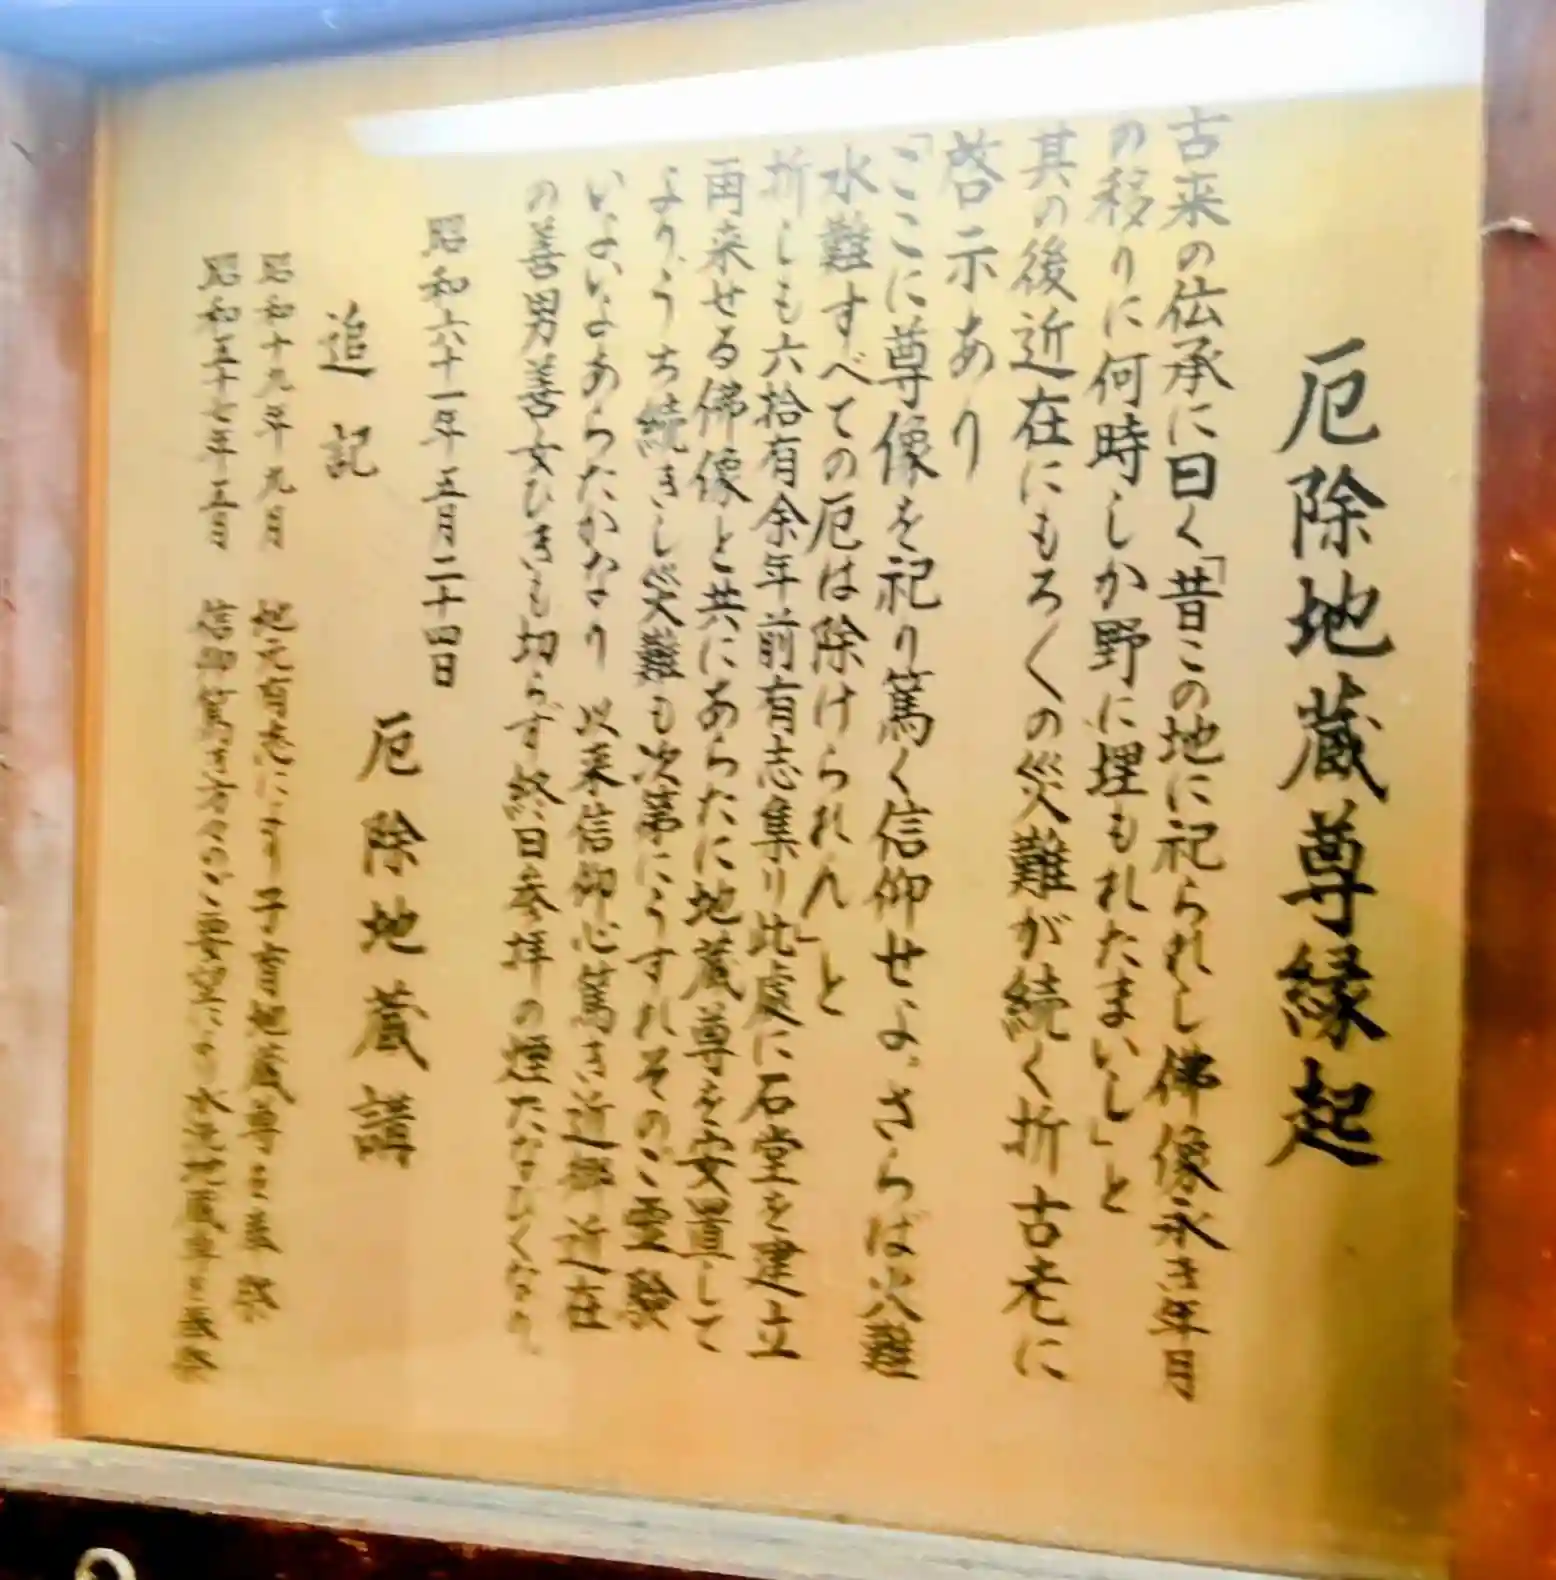 厄除地蔵尊縁起
古来の伝承に曰く「昔この地に祀られし佛像永き年月
の移りに何時しか野に埋もれたまいし」と
其の後近在にもろくの災難が続く折古老に
啓示あり
「ここに尊像を祀り篤く信仰せよ。さらば火難
水難すべての厄は除けられん」と
折しも六拾有余年前有志集り此處に石堂を建立
再来せる佛像と共にあらたに地蔵尊を安置して
より、うち続きし災難も次第にうすれそのご霊験
いよいよあらたかなり 以来信仰心篤き近郷近在
の善男善女ひきも切らず終日参拝の煙たなびくなり。
昭和六十一年五月二十四日
厄除地蔵講
追記
昭和十九年九月 地元有志により子育地蔵尊を奉祭
昭和五十七年五月 信仰篤き方々のご要望により水洗地蔵尊を奉祭